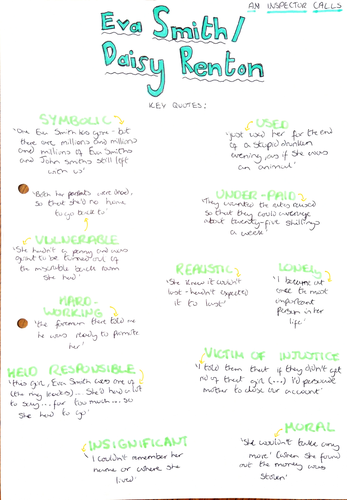 AN INSPECTOR CALLS
Eva Smith/
Daisy Renton
KEY QUOTES:
SYMBOLIC
'One Eva Smith has gone - but
there are millions and millions
and millions of Eva Smiths
and John Smiths still left
with us'
'Both her parents were dead,
so that she'd no home
to go back to'
VULNERABLE
'She hadn't a penny and was
going to be turned out of
the miserable back room
she had'
HARD-
WORKING
'the foreman there told me
he was ready to promote
her'
HELD RESPONSIBLE
'this girl, Eva Smith was one of
(the ring leaders)... She'd had a lot
to say... far too much... so
she had to go'
INSIGNIFICANT
'I couldn't remember her
name or where she
lived'
USED
'just used her for the end
of a stupid drunken
evening, as if she was
an animal'
UNDER-PAID
'They wanted the rates raised
so that they could average
about twenty-five shillings
a week'
REALISTIC
'She knew it couldn't
last - hadn't expected
it to last'
LONELY
'I became at
once the most
important
person in her
life'
VICTIM OF INJUSTICE
'I told them that if they didn't get
rid of that girl (...) I'd persuade
mother to close our account'
MORAL
'She wouldn't take any
more' (when she found
out the money was
stolen)